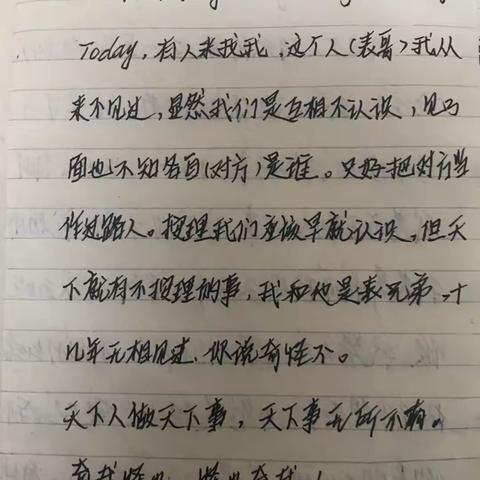 Today, 有人来找我，这个人（表哥）我从
来不见过，显然我们是互相不认识，见马
面也不知各自（对方）是谁。只好把对方当
作过路人。按理我们应该早就认识，但天
下就有不按理的事，我和他是表兄弟，十
几年无相见过，你说奇怪不。
天下人做天下事，天下事无所不有。